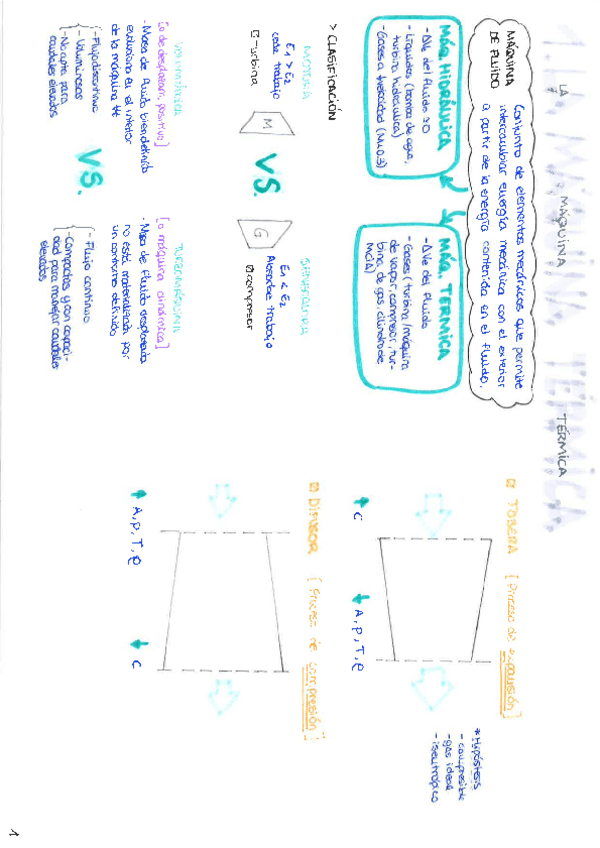 1. LA MÁQUINA TÉRMICA
MÁQUINA
DE FLUIDO
Conjunto de elementos mecánicos que permite
intercambiar energía mecánica con el exterior
a partir de la energía contenida en el fluido.
MÁQ. HIDRÁULICA
- ΔVe del fluido ≃0
- Líquidos (bomba de agua,
turbina hidráulica)
- Gases a
MÁQ. TÉRMICA
- ΔVe del fluido
- Gases (turbina/máquina
de vapor, compresor, tur-
bina de gas, cilindro de
MCIA)
> CLASIFICACIÓN
MOTORA
E1 > E2
cede trabajo
turbina
M
VS.
GENERADORA
E1 < E2
Absorbe trabajo
compresor
G
VOLUMÉTRICA
[o de desplazam. positivo]
- Masa de fluido bien definida
evoluciona en el interior
de la máquina
- Flujo discontinuo
- Voluminosas
- No apta para
caudales elevados
VS.
TURBOMÁQUINA
[o máquina dinámica]
- Masa de fluido
no está materializada por
un contorno definido
- Flujo continuo
- Compactas y con capaci-
dad para manejar caudales
elevados
TOBERA [Proceso de expansión]
↑ C
↓ A, P, T, ρ
*Hipótesis
- compresible
- gas ideal
- isentrópico
DIFUSOR [Proceso de compresión]
↑ A, P, T, ρ
↓ C
1